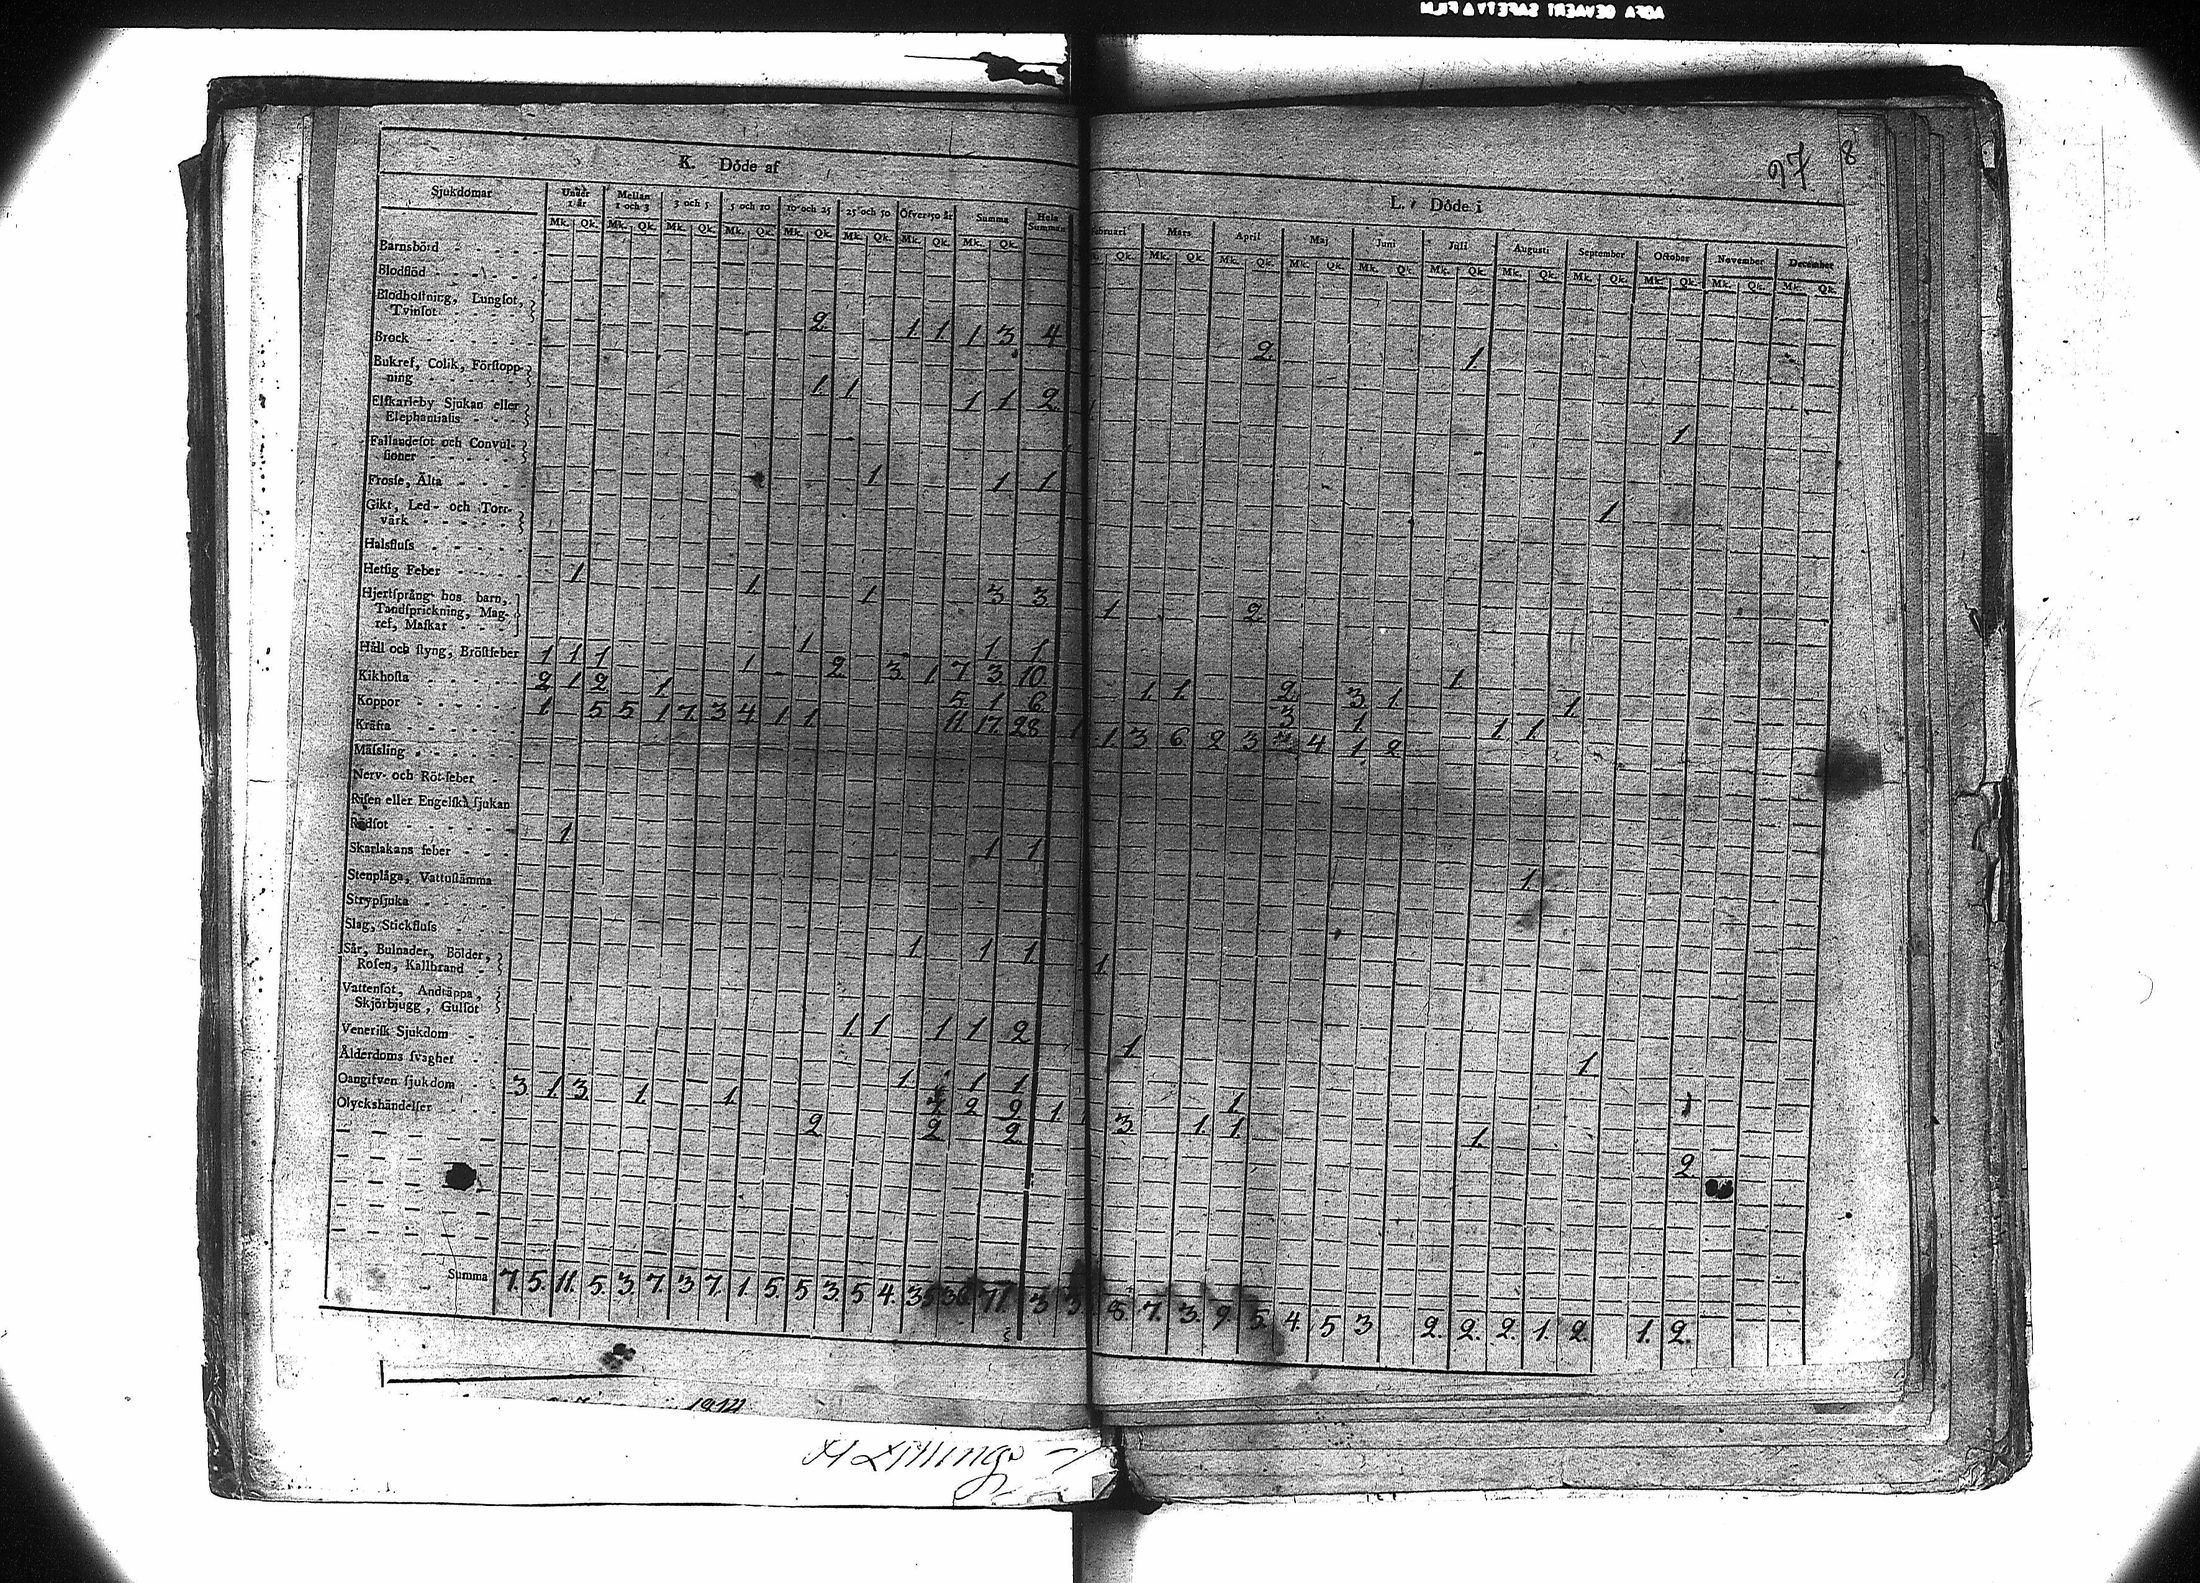 AGFA GEVAERT SAFETY FILM
97 8
K. Döde af
L. Döde i
Sjukdomar Under 1 år Mellan 1 och 3 3 och 5 5 och 10 10 och 25 25 och 50 Öfver 50 år Summa Hela Summan
Februari Mars April Maj Juni Juli Augusti September October November December
Mk. Qk. Mk. Qk. Mk. Qk. Mk. Qk. Mk. Qk. Mk. Qk. Mk. Qk. Mk. Qk.
Qk. Mk. Qk. Mk. Qk. Mk. Qk. Mk. Qk. Mk. Qk. Mk. Qk. Mk. Qk. Mk. Qk. Mk. Qk. Mk. Qk.
Barnsbörd
Blodflöd
Blodhostning, Lungsot,
Tvinsot 2 1 1 1 3 4 2 1
Brock
Bukref, Colik, Förstopp-
ning 1 1 1 1 2 1
Elfkarleby Sjukan eller
Elephantiasis
Fallandesot och Convul-
sioner 1 1 1 1
Frossa, Älta
Gikt, Led- och Torr-
värk
Halsfluss
Hetsig Feber 1 1 1 3 3 1 2
Hjertsprång hos barn,
Tandsprickning, Mag-
ref, Maskar 1 1 1 1
Håll och styng, Bröstfeber 1 1 1 1 2 3 1 7 3 10 1 1 2 3 1 1
Kikhosta 2 1 2 1 5 1 6 3 1 1 1
Koppor 1 5 5 1 7 3 4 1 1 11 17 28 1 1 3 6 2 3 4 1 2
Kräfta
Mässling
Nerv- och Röt-feber
Risen eller Engelska sjukan
Rödsot 1 1 1 1
Skarlakans feber
Stenplåga, Vattustämma
Strypsjuka
Slag, Stickfluss 1 1 1 1
Sår, Bulnader, Bölder,
Rosen, Kallbrand
Vattensot, Andtäppa,
Skjörbjugg, Gulsot 1 1 1 1 2 1 1
Venerisk Sjukdom
Ålderdoms svaghet 1 1 1 1
Oangifven sjukdom 3 1 3 1 1 2 9 1 3 1 1 1
Olyckshändelser 2 2 2 2
Summa 7. 5. 11. 5. 3. 7. 3 7. 1. 5. 5 3. 5 4. 35 36 71. 3 3 8. 7. 3. 9. 5. 4. 5 3 2. 2. 2. 1. 2. 1. 2.